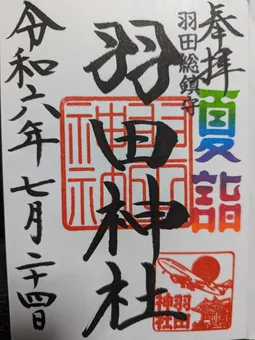 奉拝
羽田総鎮守
夏詣
羽田神社
令和六年七月二十四日
羽田
神社